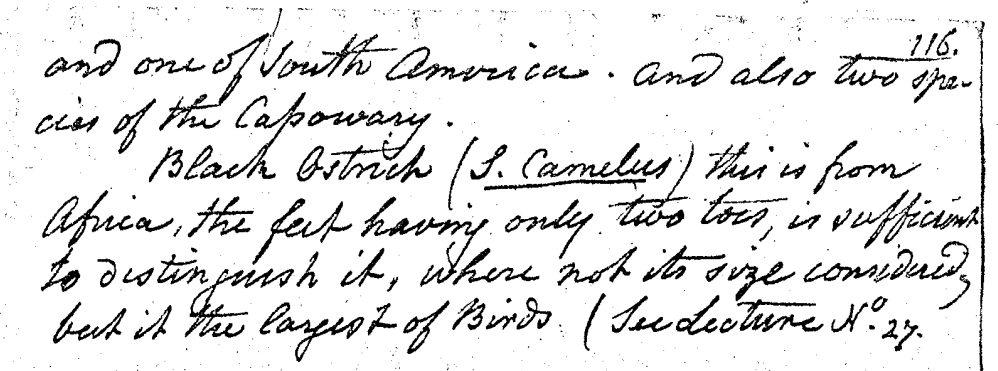 116.
and one of South America. and also two spe-
cies of the Capowary.
Black Ostrich (S. Camelus) this is from
Africa, the feet having only two toes, is sufficient
to distinguish it, where not its size considered,
but it the largest of Birds (See Lecture No. 27.